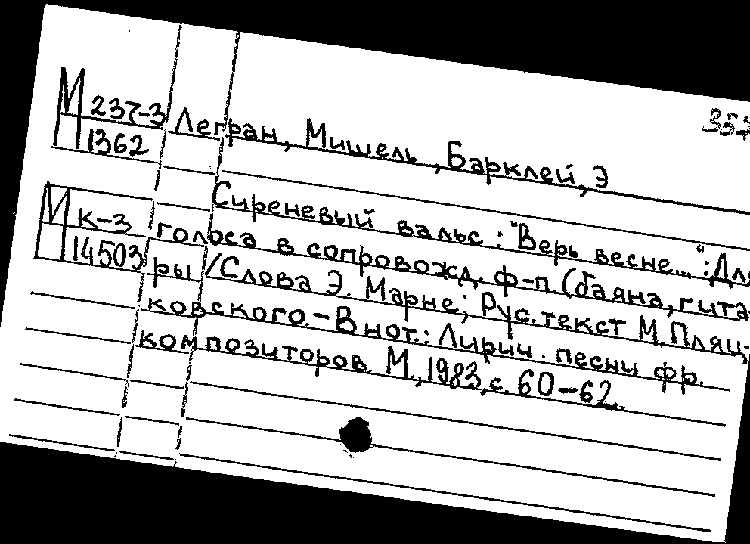 357
М 237-3
1362
Легран, Мишель, Барклей, Э
Сиреневый вальс: "Верь весне...": Для
М к-3
14503
голоса в сопровожд. ф-п (баяна, гита-
ры) / Слова Э. Марне; Рус. текст М. Пляц-
ковского. - В нот.: Лирич. песни фр.
композиторов М., 1983, с. 60-62.